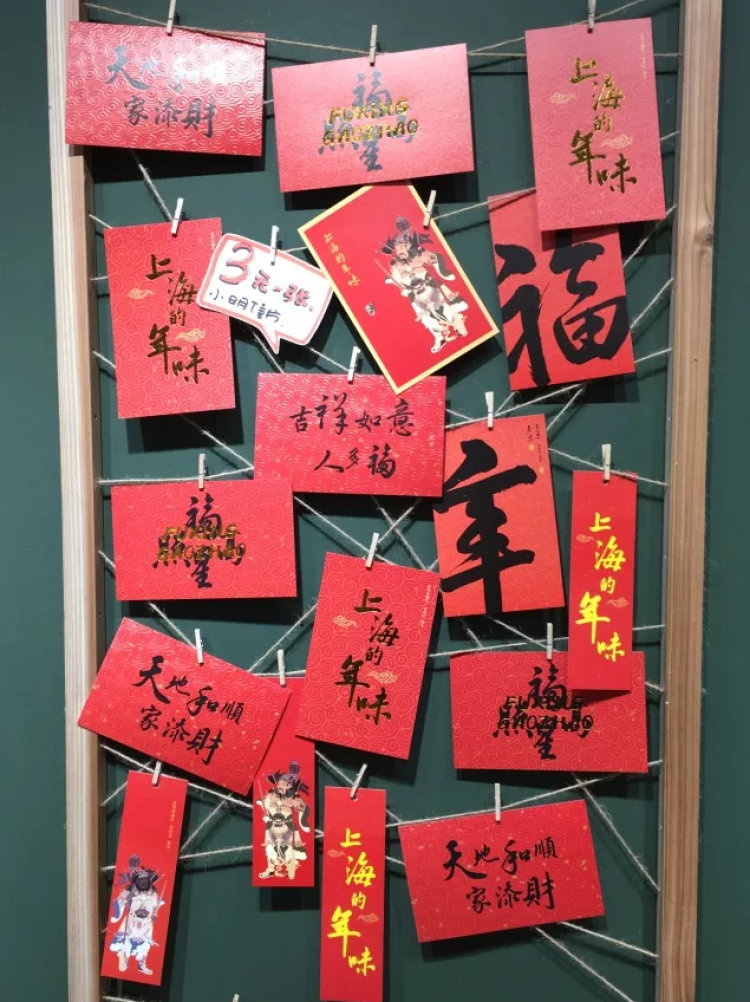 天地和順
家添財
福
FUXING
GAOZHAO
星
上海的年味
上海的年味
3元一张
小明信片
上海的年味
福
吉祥如意
人多福
年
福
FUXING
GAOZHAO
星
上海的年味
上海的年味
天地和順
家添財
福
FUXING
GAOZHAO
星
上海的年味
天地和順
家添財